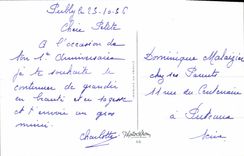 le 23-10-56
Chère Filote
A l'occasion de
ton 1er Anniversaire
je te souhaite de
continuer de grandir
en beauté et en sagesse
et t'envoie un gros
mimi.
Charlotte
Dominique
chez ses Parents
11 rue du Centenaire
à Puteaux
Seine